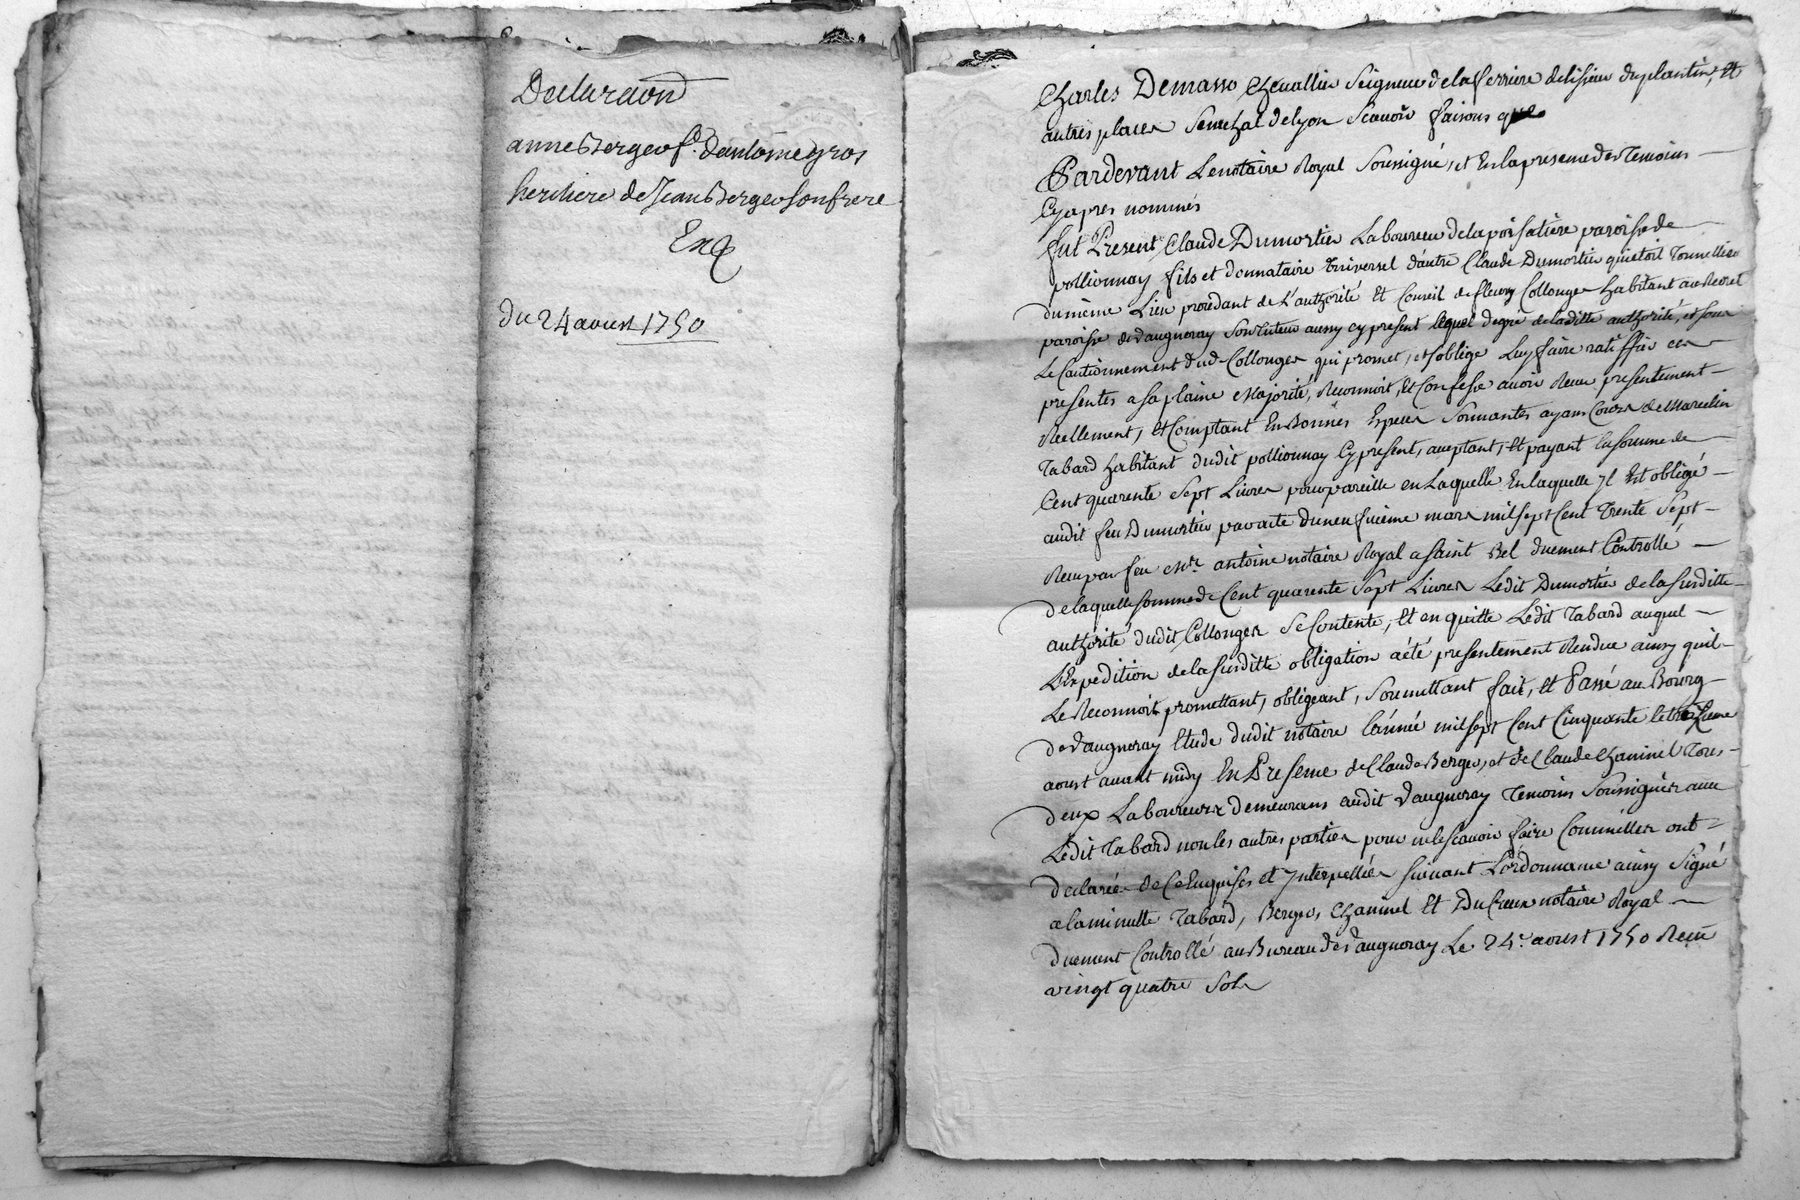 Declaraon
anne Bergeo fe. dantoine gros
heritiere de Jean Bergeo son frere
Exq
du 24 aoust 1750
Charles Demasso Chevallier Seigneur de la ferriere delisieu du plantin, et
autres places Senechal de lyon Scavoir faisons que
Pardevant Le notaire Royal Soussigné, et En la presence des Temoins
Cy apres nommés
fut Present Claude Dumortier Laboureur de la poisatiere paroisse de
pollionnay fils et donnataire Universel dautre Claude Dumortier qui étoit Tonnellier
du même Lieu procedant de L'authorité Et Conseil de fleury Collonges habitant au Recret
paroisse de Vaugneray Son tuteur aussy cy present Lequel de gré de laditte authorité, et sous
Le Cautionnement dud. Collonges qui promet, et s'oblige Luy faire ratiffier ces
presentes a sa plaine Majorité, Reconnoit, Et Confesse avoir Receu presentement
Reellement, Et Comptant En Bonnes Especes Sonnantes ayant Cours de Marcelin
Tabard habitant dudit pollionnay Cy present, acceptant, Et payant La somme de
Cent quarente Sept Livres pour pareille en Laquelle En laquelle Il Est obligé
audit feu Dumortier par acte du neufvieme mars mil sept Cent Trente Sept
Receu par feu Me. antoine notaire Royal a Saint Bel duement Controllé
de laquelle somme de Cent quarente Sept Livres Ledit Dumortier de la susditte
authorité dudit Collonges Se Contente, Et en quitte Ledit Tabard auquel
L'Expedition de la susditte obligation a été presentement Rendue ainsy quil
Le Reconnoit promettant, obligeant, Soumettant fait, et Passé au Bourg
de Vaugneray Etude dudit notaire L'année mil sept Cent Cinquante le treizieme
aoust avant midy En Presence de Claude Bergeo, et de Claude Chaninel Tous
deux Laboureurs demeurans audit Vaugneray Temoins Soussignés avec
Ledit Tabard non les autres parties pour ne le scavoir faire Comme elles ont
declarée de Ce Enquises et Interpellées suivant L'ordonnance ainsy Signé
a la minutte Tabard, Bergeo, Chaninel Et notaire Royal
duement Controllé au Bureau de Vaugneray Le 24e. aoust 1750 Receu
vingt quatre Sols